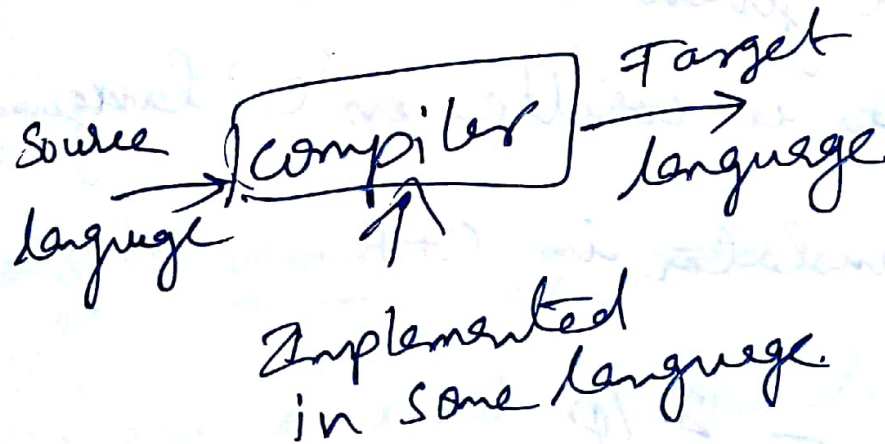 Source
language
compiler
Target
language.
Implemented
in some language.